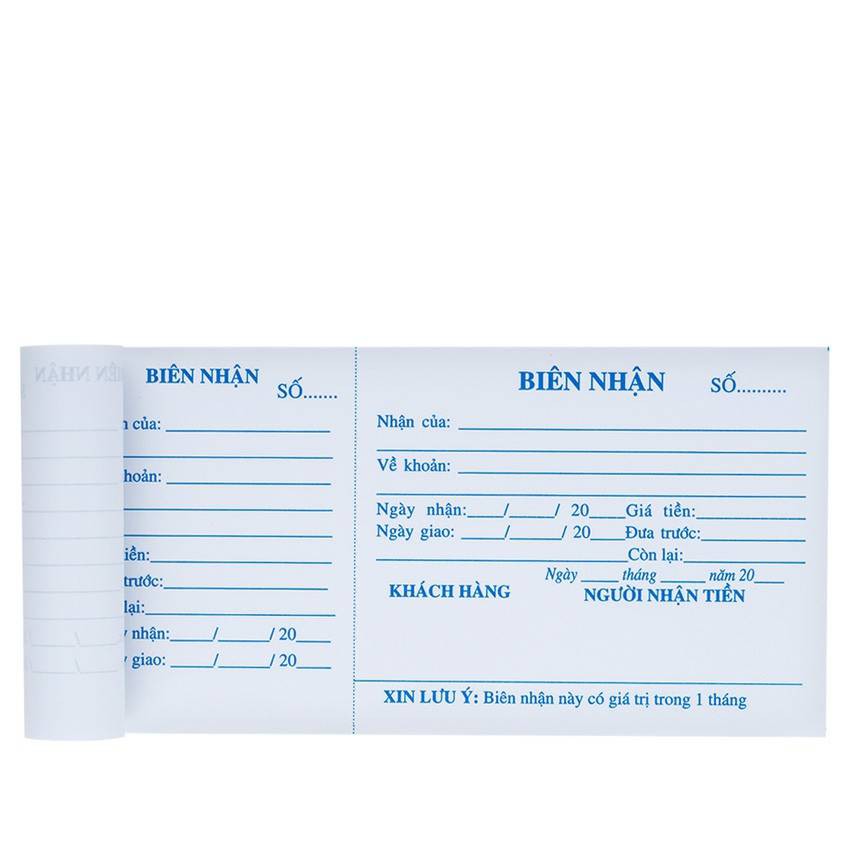 BIÊN NHẬN
SỐ.......
của: 
khoản: 
tiền:
trước:
lại:
nhận:_____/______/ 20____
giao: _____/______/ 20____
BIÊN NHẬN SỐ..........
Nhận của:
Về khoản:
Ngày nhận:____/_____/ 20____Giá tiền:
Ngày giao: ____/_____/ 20____Đưa trước:
Còn lại:
Ngày ____ tháng _____ năm 20___
KHÁCH HÀNG NGƯỜI NHẬN TIỀN
XIN LƯU Ý: Biên nhận này có giá trị trong 1 tháng